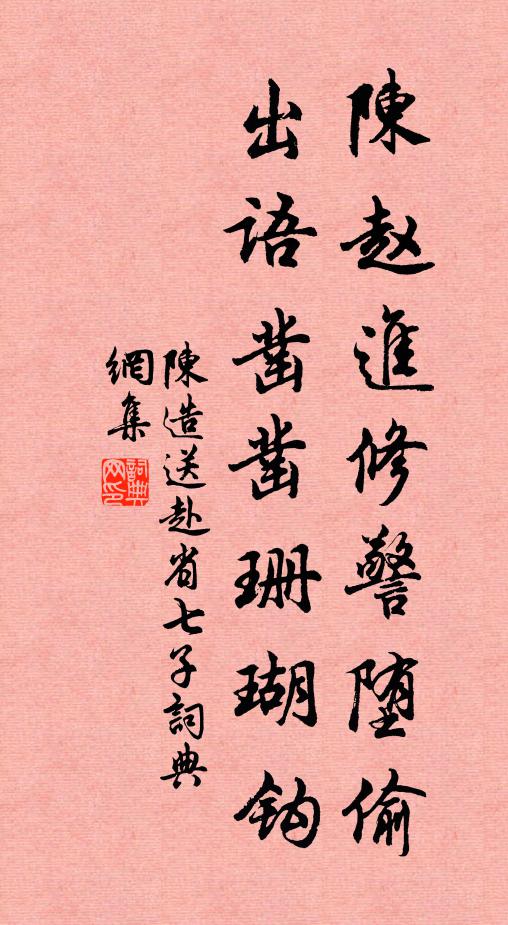 陳赵進修警堕偷
出語凿凿珊瑚鈎
陳造送赴省七子詞典
網集
詞典網印